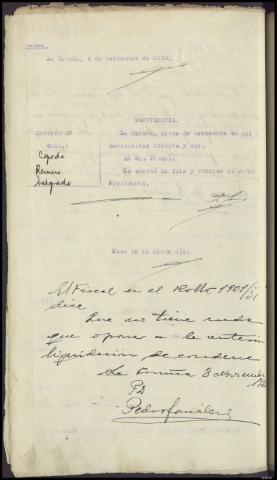 La Coruña, 4 de noviembre de
PROVIDENCIA.
La Coruña, cinco de noviembre de mil
novecientos treinta y dos.
Al Sr. Fiscal.
Lo acordó la Sala y rubrica el señor
Presidente.
Cepeda
Romero
Salgado
Pasa en el mismo día.
El Fiscal en el Rollo 1901/31
dice
Que no tiene nada
que oponer a la anterior
liquidación de condena
La Coruña 8 Noviembre
Pedro González